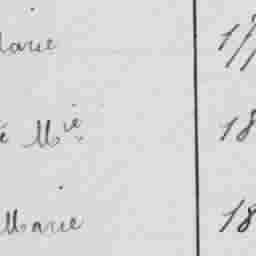 Marie 17
é M^ie 18
Marie 18